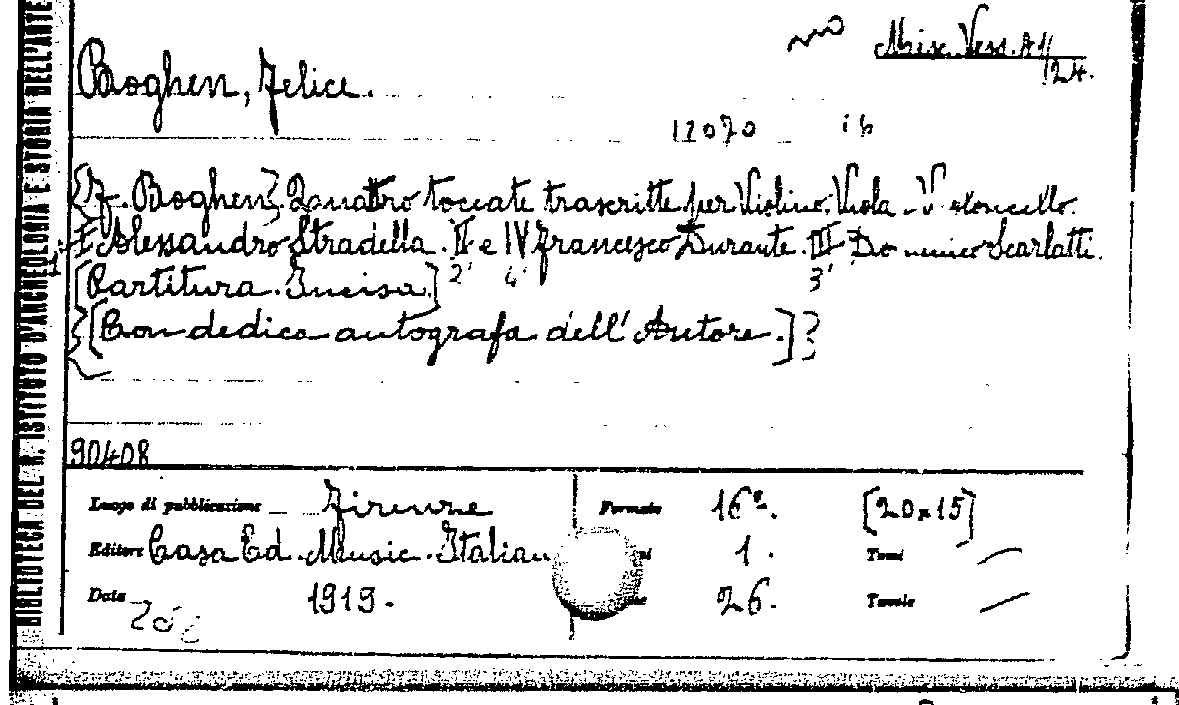 BIBLIOTECA DEL R. ISTITUTO D'ARCHEOLOGIA E STORIA DELL'ARTE
Misc. Vess. A1/24.
Boghen, Felice.
12070 ib
{F. Boghen} Quattro toccate trascritte per Violino, Viola, Violoncello.
I Alessandro Stradella. II e IV Francesco Durante. III Domenico Scarlatti.
2' 4' 3'
[Partitura. Incisa.]
{[Con dedica autografa dell'Autore.]}
90408
Luogo di pubblicazione Firenze Formato 16°. [20x15]
Editore Casa Ed. Music. Italiana 1. Tomi
Data 1919. 26. Tavole